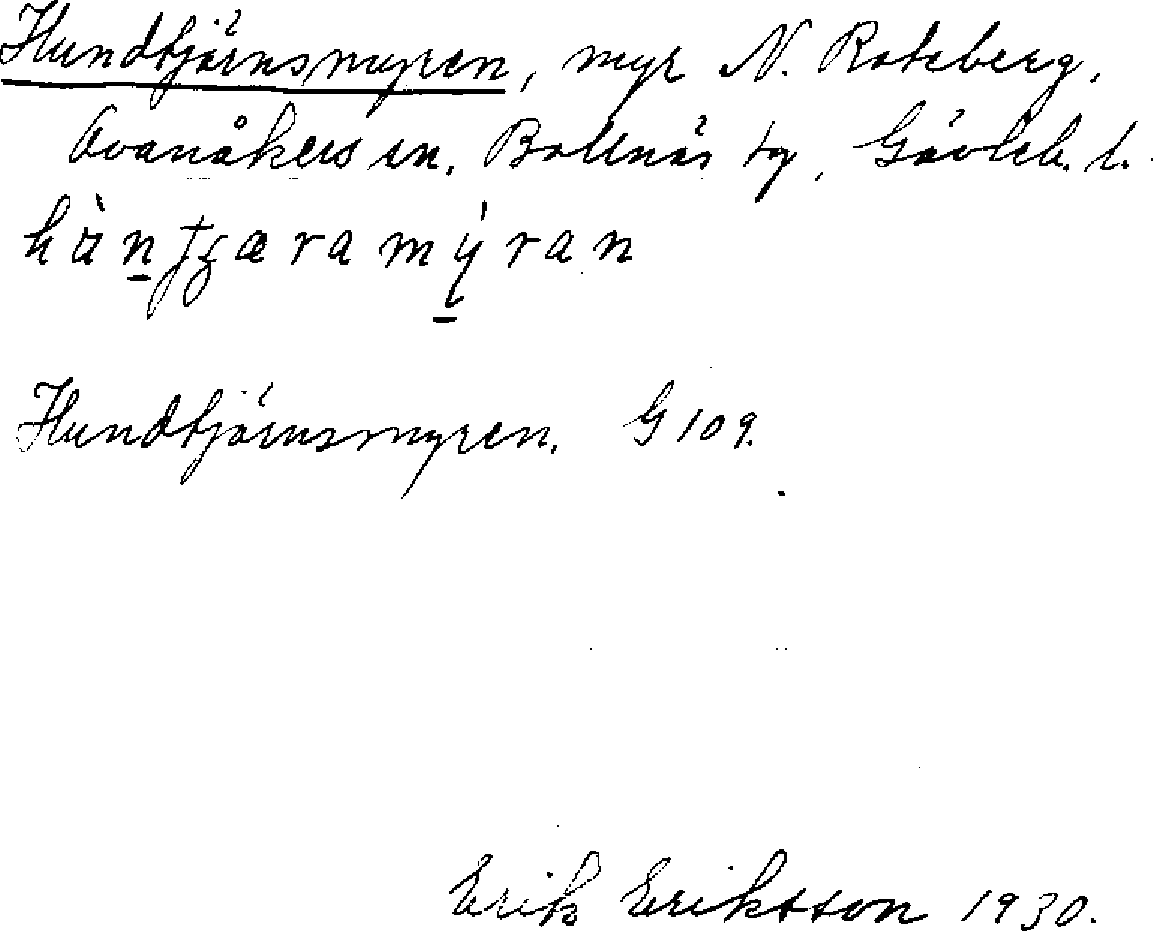 Hundtjärnsmyren, myr N. Roteberg,
Ovanåkers sn. Bollnäs tg, Gävleb. l.
Hundtjärnsmyren. G 109.
Erik Eriksson 1930.